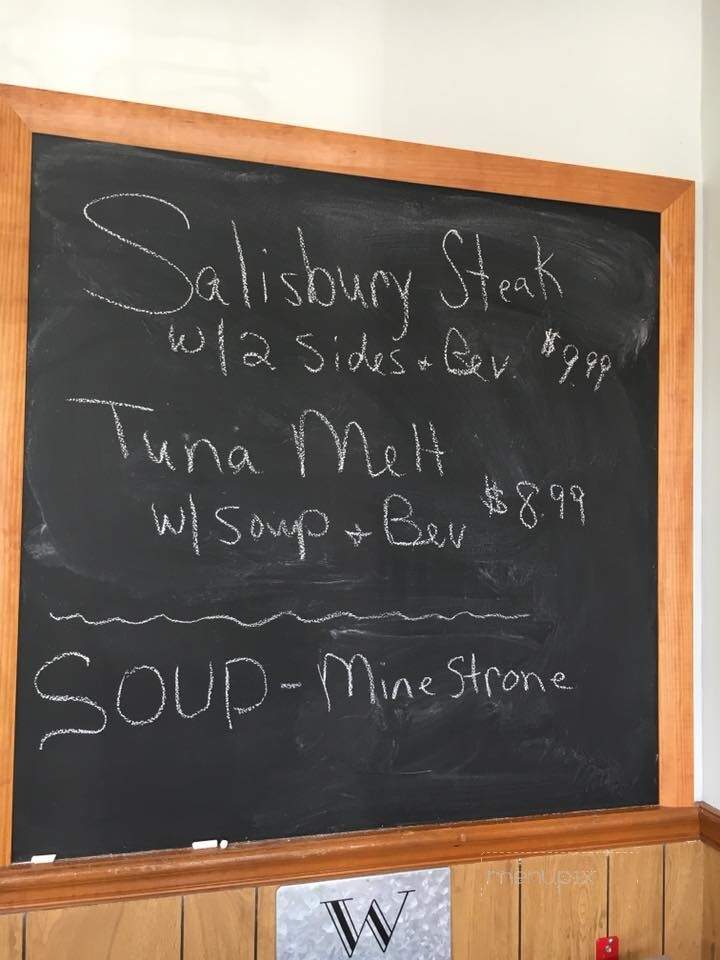 Salisbury Steak
w/2 Sides + Bev. $9.99
Tuna Melt
w/ Soup + Bev $8.99
SOUP - Minestrone
W
menupix